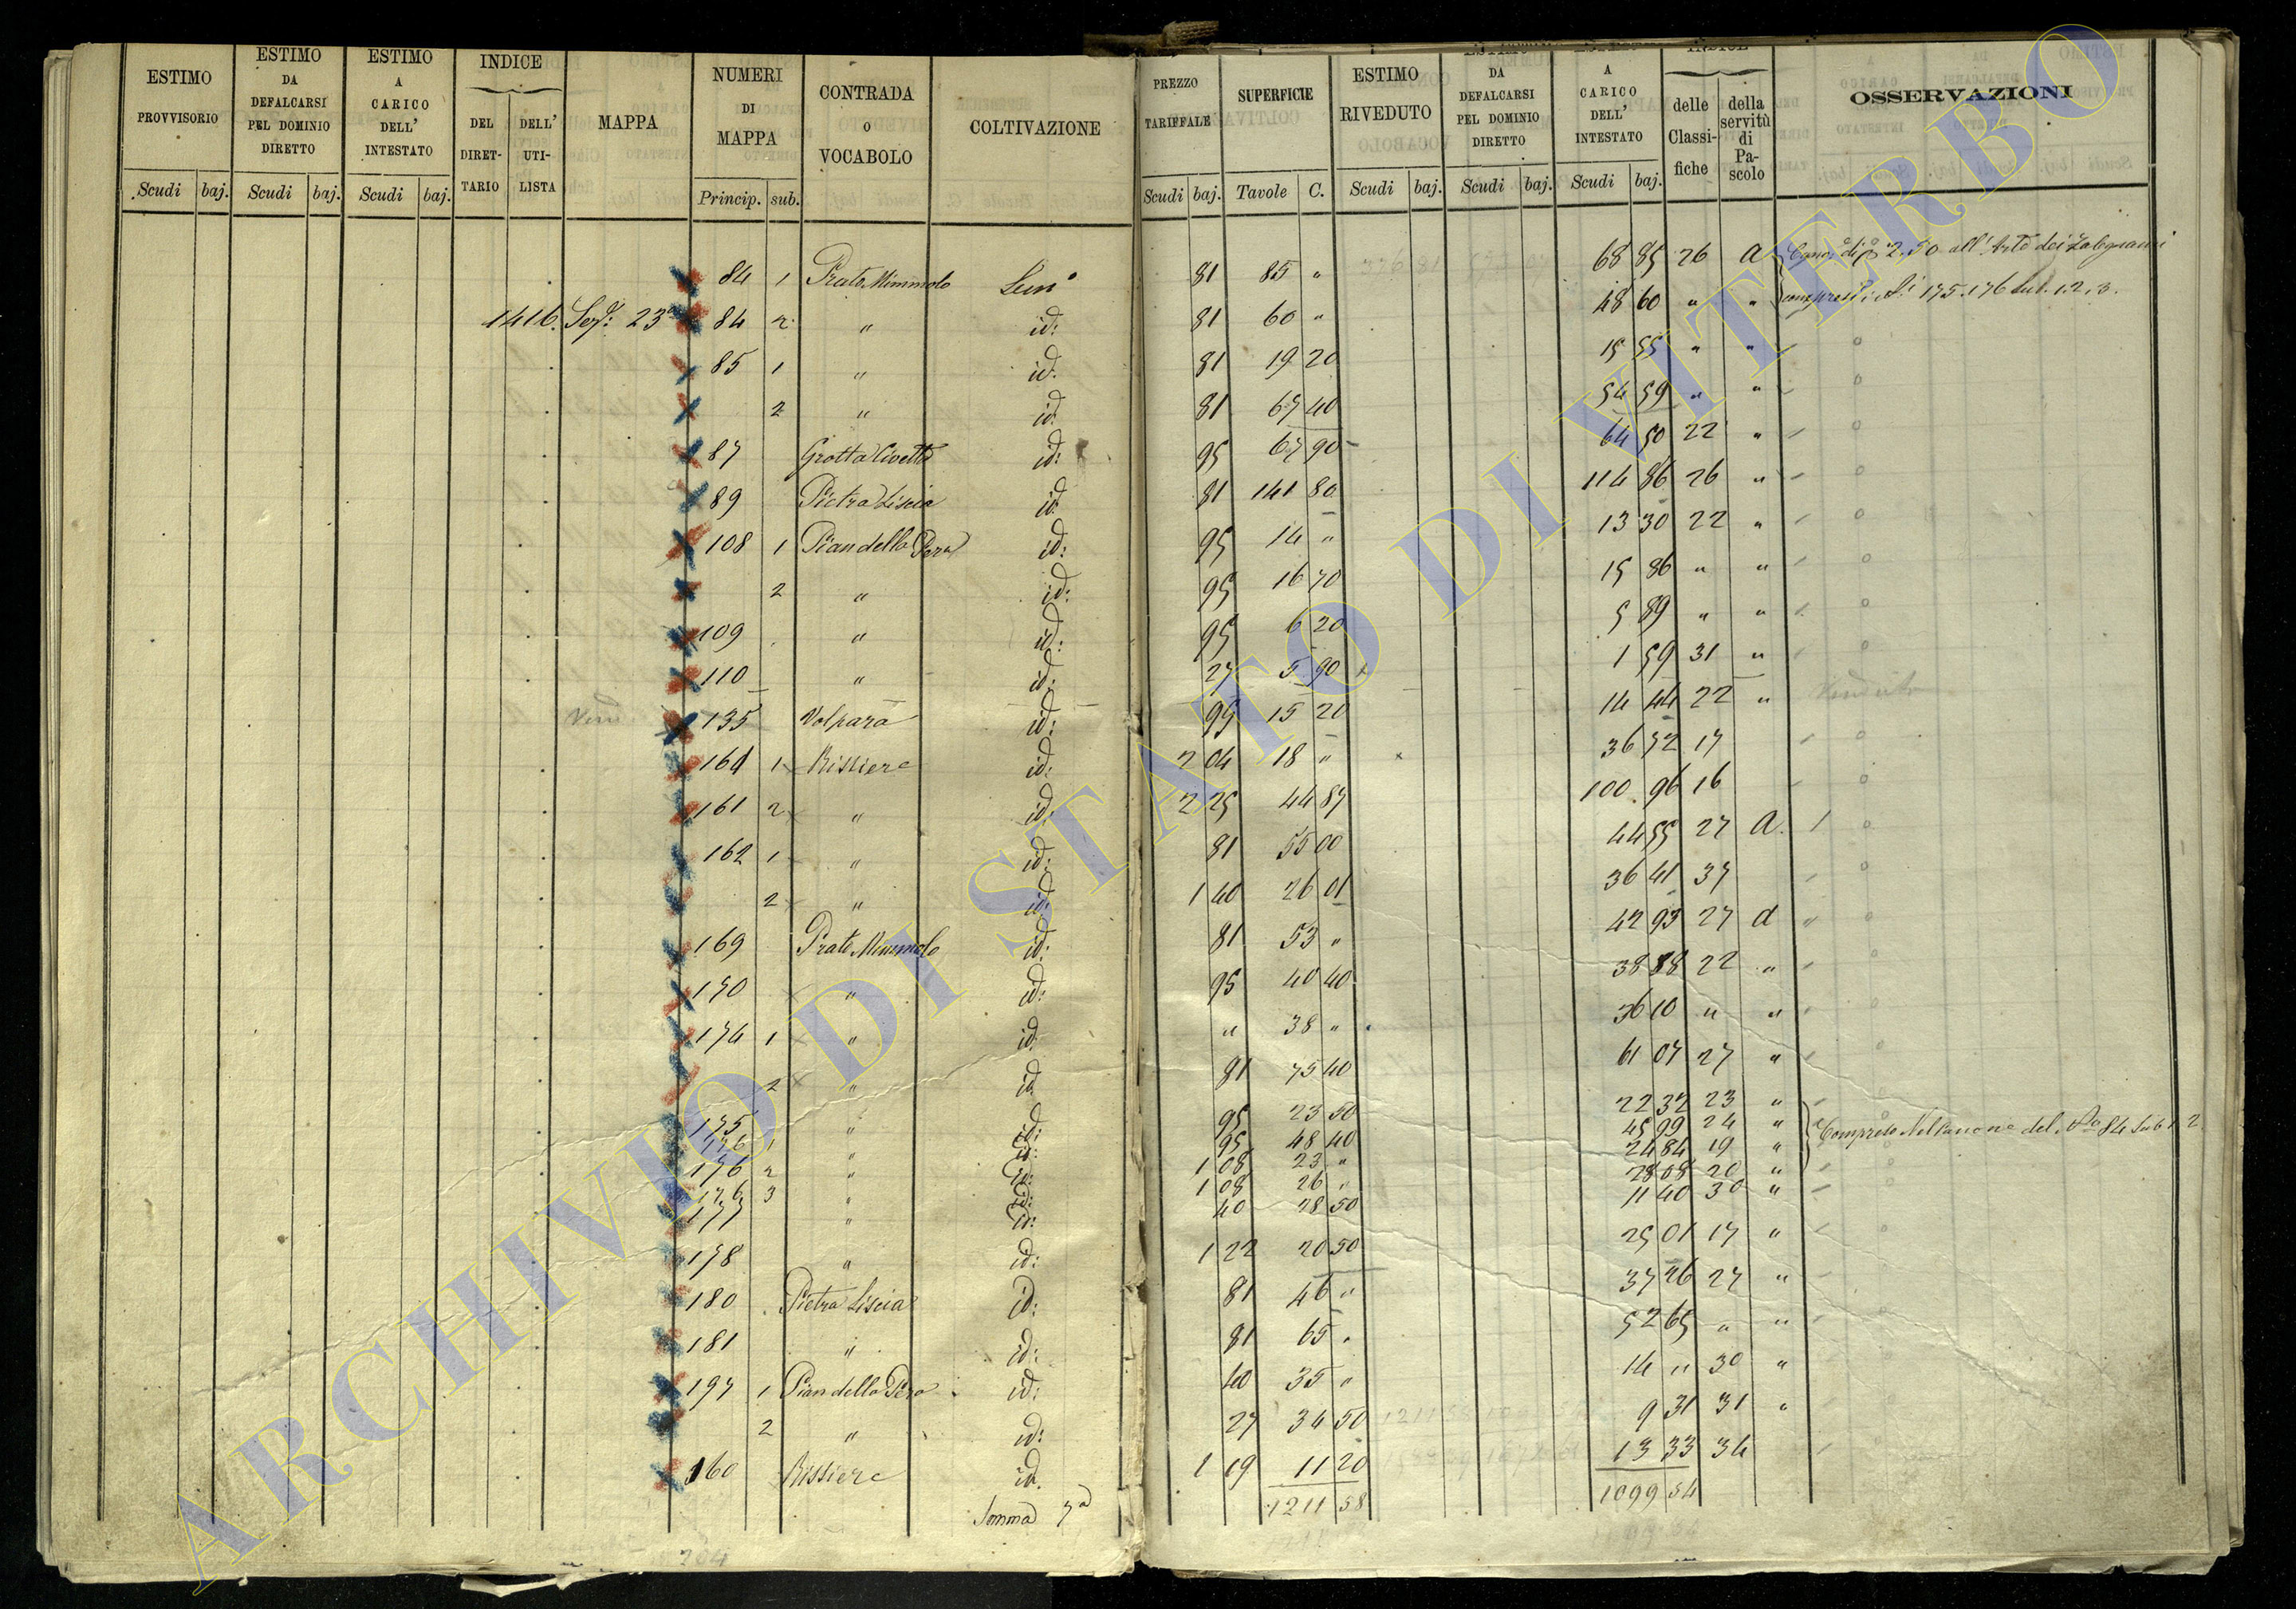 ESTIMO PROVVISORIO Scudi baj.
ESTIMO DA DEFALCARSI PEL DOMINIO DIRETTO Scudi baj.
ESTIMO A CARICO DELL' INTESTATO Scudi baj.
INDICE DEL DIRETTARIO DELL' UTILISTA
MAPPA
NUMERI DI MAPPA Princip. sub.
CONTRADA O VOCABOLO
COLTIVAZIONE
PREZZO TARIFFALE Scudi baj.
SUPERFICIE Tavole C.
ESTIMO RIVEDUTO Scudi baj.
DA DEFALCARSI PEL DOMINIO DIRETTO Scudi baj.
A CARICO DELL' INTESTATO Scudi baj.
INDICE delle Classifiche della servitù di Pascolo
OSSERVAZIONI
84 1 Prato Mimmolo 81 85 " 68 85 26 a 2.50 all'Arte dei Falegnami
1416. Sez. 23a 84 2 " id: 81 60 " 48 60 " " 175.176 sub. 1.2.3.
85 1 " id. 81 19 20 15 55 " "
2 " id. 81 67 40 54 59 " "
87 Grotta Civetta id: 95 67 90 64 50 22 "
89 Pietra Liscia id. 81 141 80 114 86 26 "
108 1 Pian della Pera id: 95 14 " 13 30 22 "
2 " id: 95 16 70 15 86 " "
109 " id: 95 6 20 5 89 " "
110 " id: 27 5 90 1 59 31 "
135 Volpara id: 95 15 20 14 44 22 " Venduto
161 1 Rissiere id: 2 04 18 " 36 72 17
161 2 " id: 2 25 44 87 100 96 16
162 1 " id: 81 55 00 44 55 27 a.
2 " id: 1 40 26 01 36 41 37
169 Prato Mimmolo id: 81 53 " 42 93 27 a
170 " id: 95 40 40 38 38 22 "
174 1 " id. " 38 " 36 10 " "
2 " id. 81 75 40 61 07 27 "
175 " id: 95 23 50 22 32 23 "
176 1 " id: 95 48 40 45 99 24 " Compreso nel canone del 84 sub 1 2
176 2 " id: 1 08 23 " 24 84 19 "
176 3 " id: 1 08 26 " 28 08 20 "
177 " id: 40 28 50 11 40 30 "
178 " id: 1 22 20 50 25 01 17 "
180 Pietra Liscia id: 81 46 " 37 26 27 "
181 " id: 81 65 " 52 65 " "
197 1 Pian della Pera id: 40 35 " 14 " 30 "
2 " id: 27 34 50 9 31 31 "
160 Rissiere id. 1 19 11 20 13 33 34
Somma 7a 1211 58 1099 54
204
ARCHIVIO DI STATO DI VITERBO